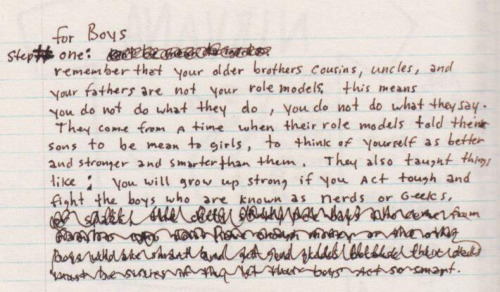 for Boys
step # one:
remember that your older brothers cousins, uncles, and
your fathers are not your role models. this means
you do not do what they do, you do not do what they say.
They come from A time when their role models told their
sons to be mean to girls, to think of yourself as better
and stronger and smarter than them. They also taught things
like: you will grow up strong if you Act tough and
fight the boys who are known as nerds or Geeks,